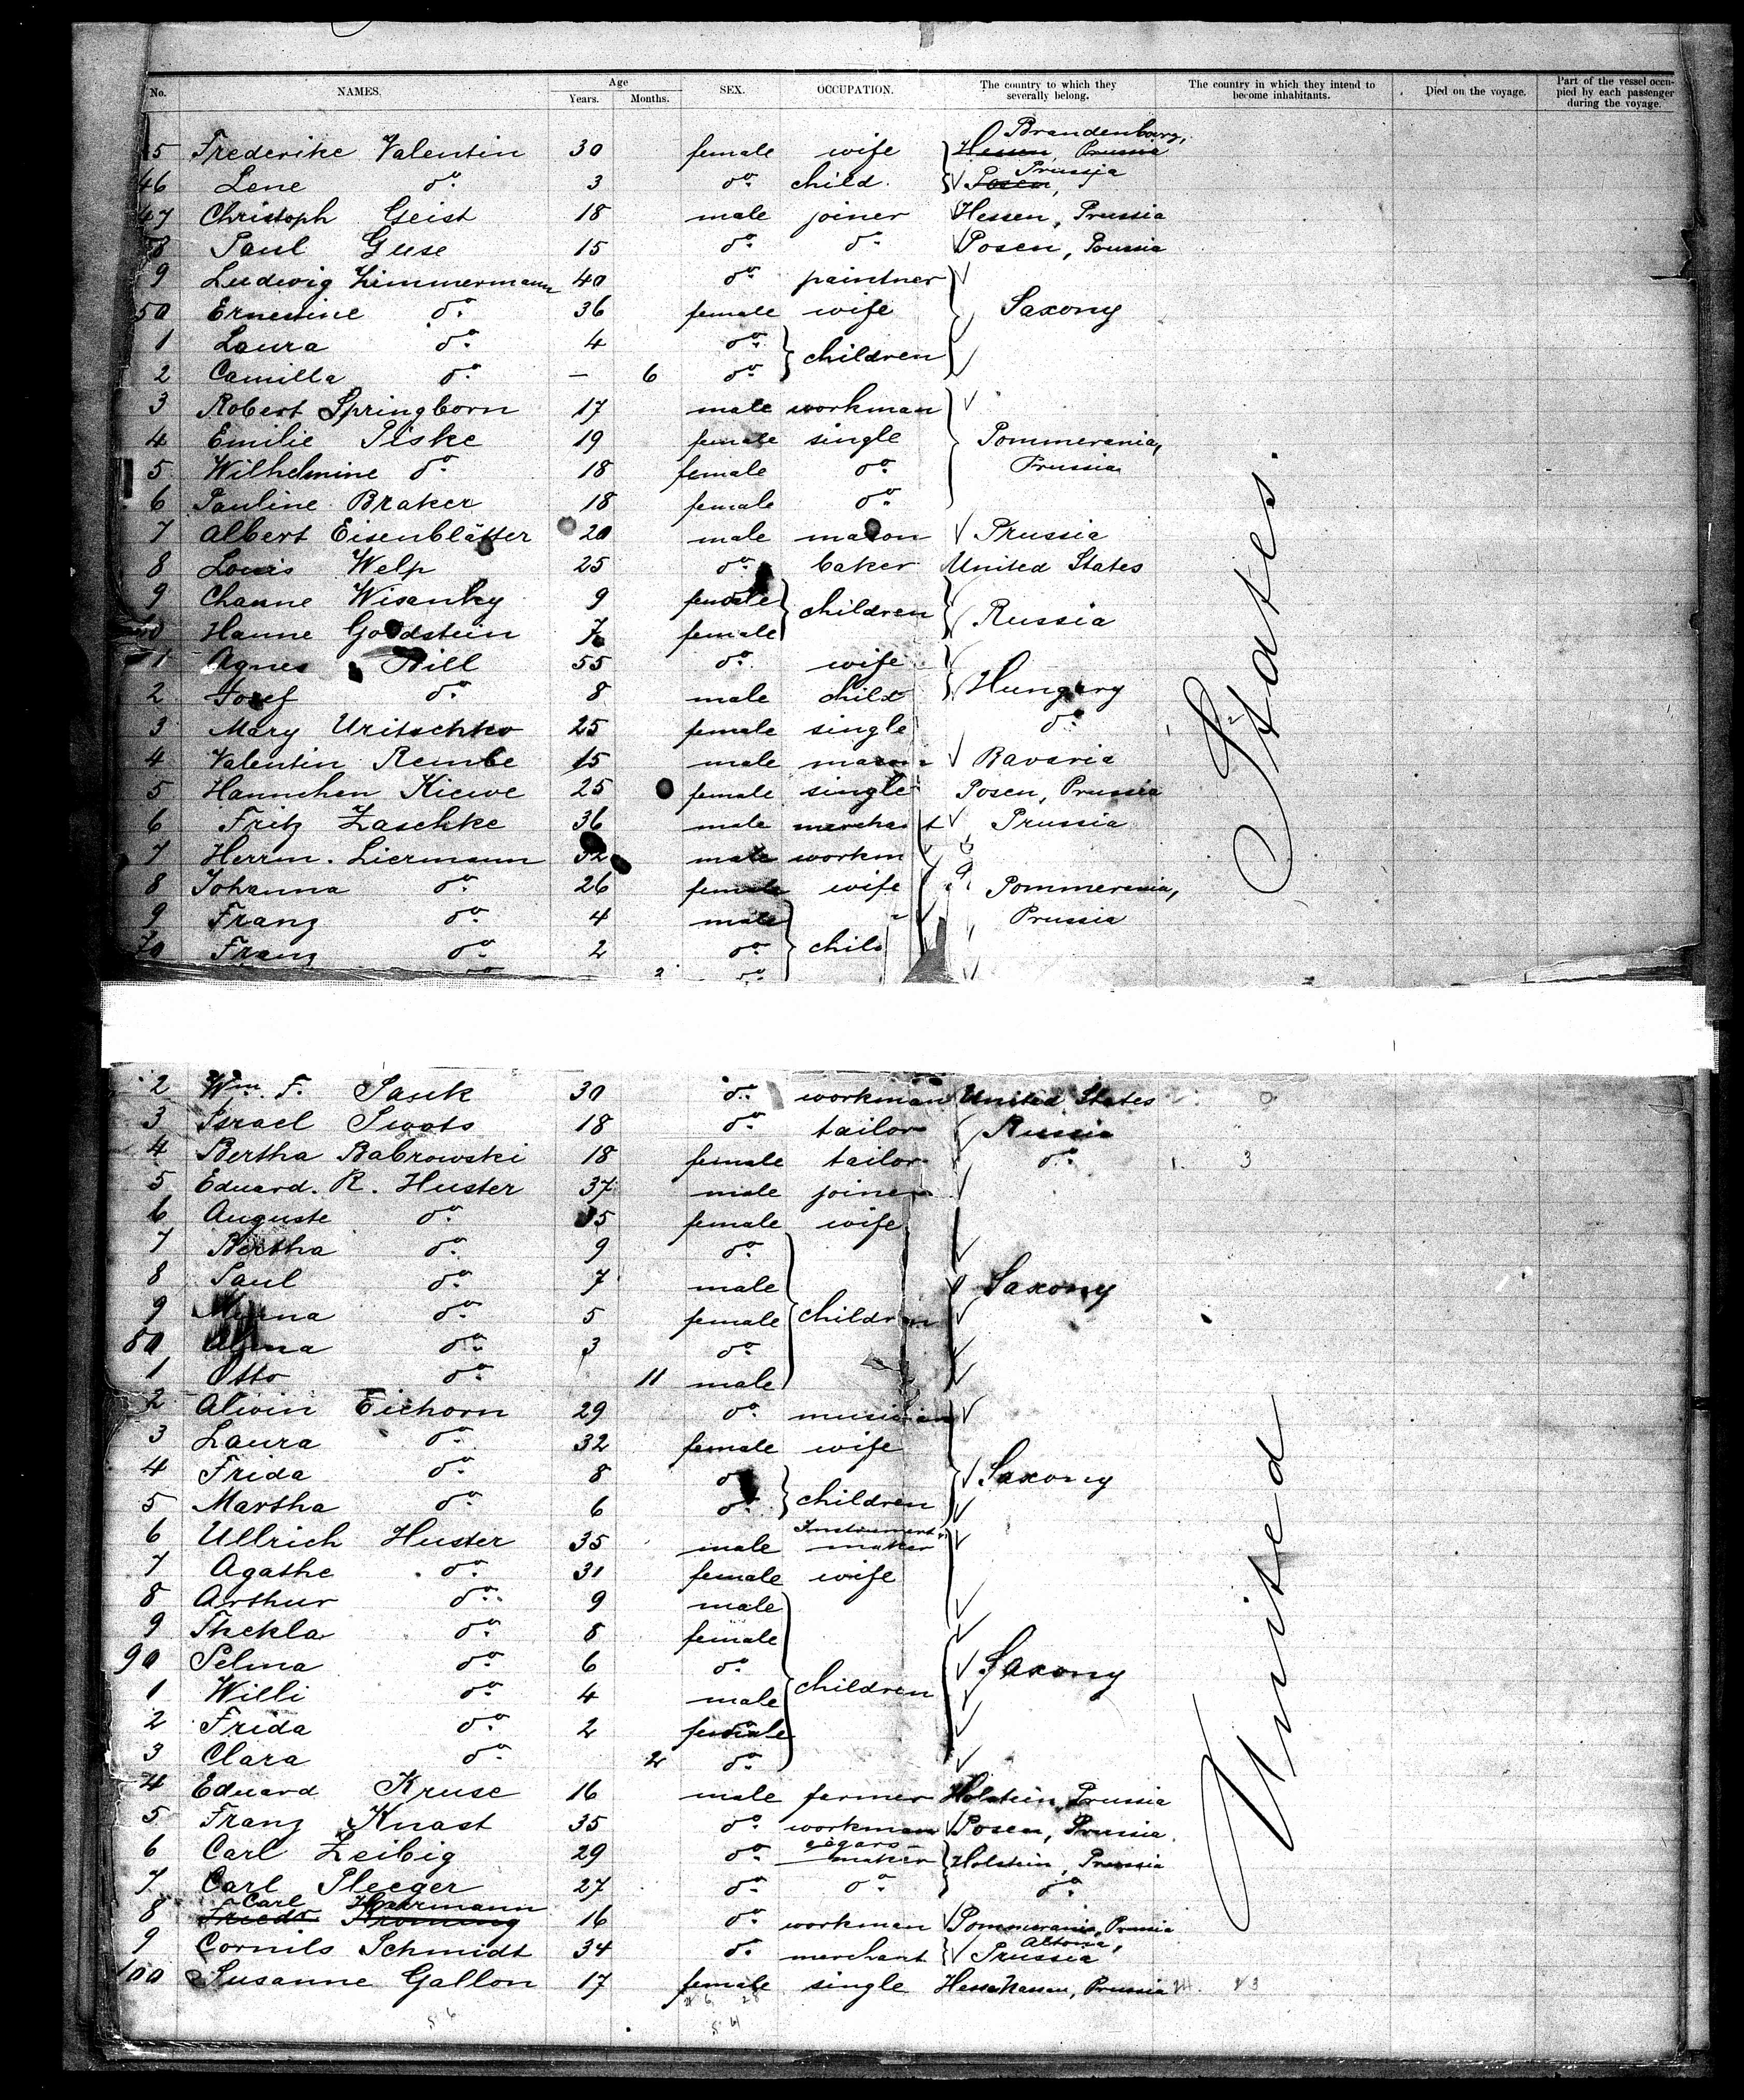 No. NAMES. Age Years. Months. SEX. OCCUPATION. The country to which they severally belong. The country in which they intend to become inhabitants. Died on the voyage. Part of the vessel occupied by each passenger during the voyage.
Brandenburg,
5 Frederike Valentin 30 female wife Hessen, Prussia
Prussia
46 Lene do. 3 do. child. Posen,
47 Christoph Geist 18 male joiner Hessen, Prussia
8 Paul Guse 15 do. do. Posen, Prussia
9 Ludwig Zimmermann 40 do. paintner
50 Ernestine do. 36 female wife Saxony
1 Laura do. 4 do. children
2 Camilla do. — 6 do.
3 Robert Springborn 17 male workman
4 Emilie Piske 19 female single Pommerania,
5 Wilhelmine do. 18 female do. Prussia
6 Pauline Braker 18 female do.
7 Albert Eisenblätter 20 male mason Prussia
8 Louis Welp 25 do. baker United States
9 Channe Wisanky 9 female children Russia
Hanne Goldstein 7 female
1 Agnes Hill 55 do. wife Hungary
2 Josef do. 8 male child
3 Mary Uritschko 25 female single do.
4 Valentin Rembe 15 male mason Bavaria
5 Hannchen Kiewe 25 female single Posen, Prussia
6 Fritz Zaschke 36 male merchant Prussia
7 Herrm. Liermann 32 male workm
8 Johanna do. 26 female wife Pommerania,
9 Franz do. 4 male Prussia
70 Franz do. 2 do. child
do.
2 Wm. F. Pauk 30 do. workman United States
3 Israel Swots 18 do. tailor Russia
4 Bertha Babrowski 18 female tailor do. 1. 3
5 Eduard. R. Huster 37 male joiner
6 Auguste do. 35 female wife
7 Bertha do. 9 do.
8 Paul do. 7 male Saxony
9 do. 5 female children
80 do. 3 do.
1 Otto do. 11 male
2 Alivin Eichorn 29 do. musician
3 Laura do. 32 female wife
4 Frida do. 8 do. Saxony
5 Martha do. 6 do. children
Instrument
6 Ullrich Huster 35 male maker
7 Agathe do. 31 female wife
8 Arthur do. 9 male
9 Thekla do. 8 female
90 Selma do. 6 do. Saxony
1 Willi do. 4 male children
2 Frida do. 2 female
3 Clara do. 2 do.
4 Eduard Kruse 16 male farmer Holstein, Prussia
5 Franz Knast 35 do. workman Posen, Prussia.
cigars
6 Carl Zeibig 29 do. maker Holstein, Prussia
7 Carl Pleeger 27 do. do. do.
Carl Haarmann
8 Friedr. Kröning 16 do. workman Pommerania, Prussia
Altona,
9 Cornils Schmidt 34 do. merchant Prussia
100 Susanne Gallon 17 female single Hessen Nassau, Prussia
United States.